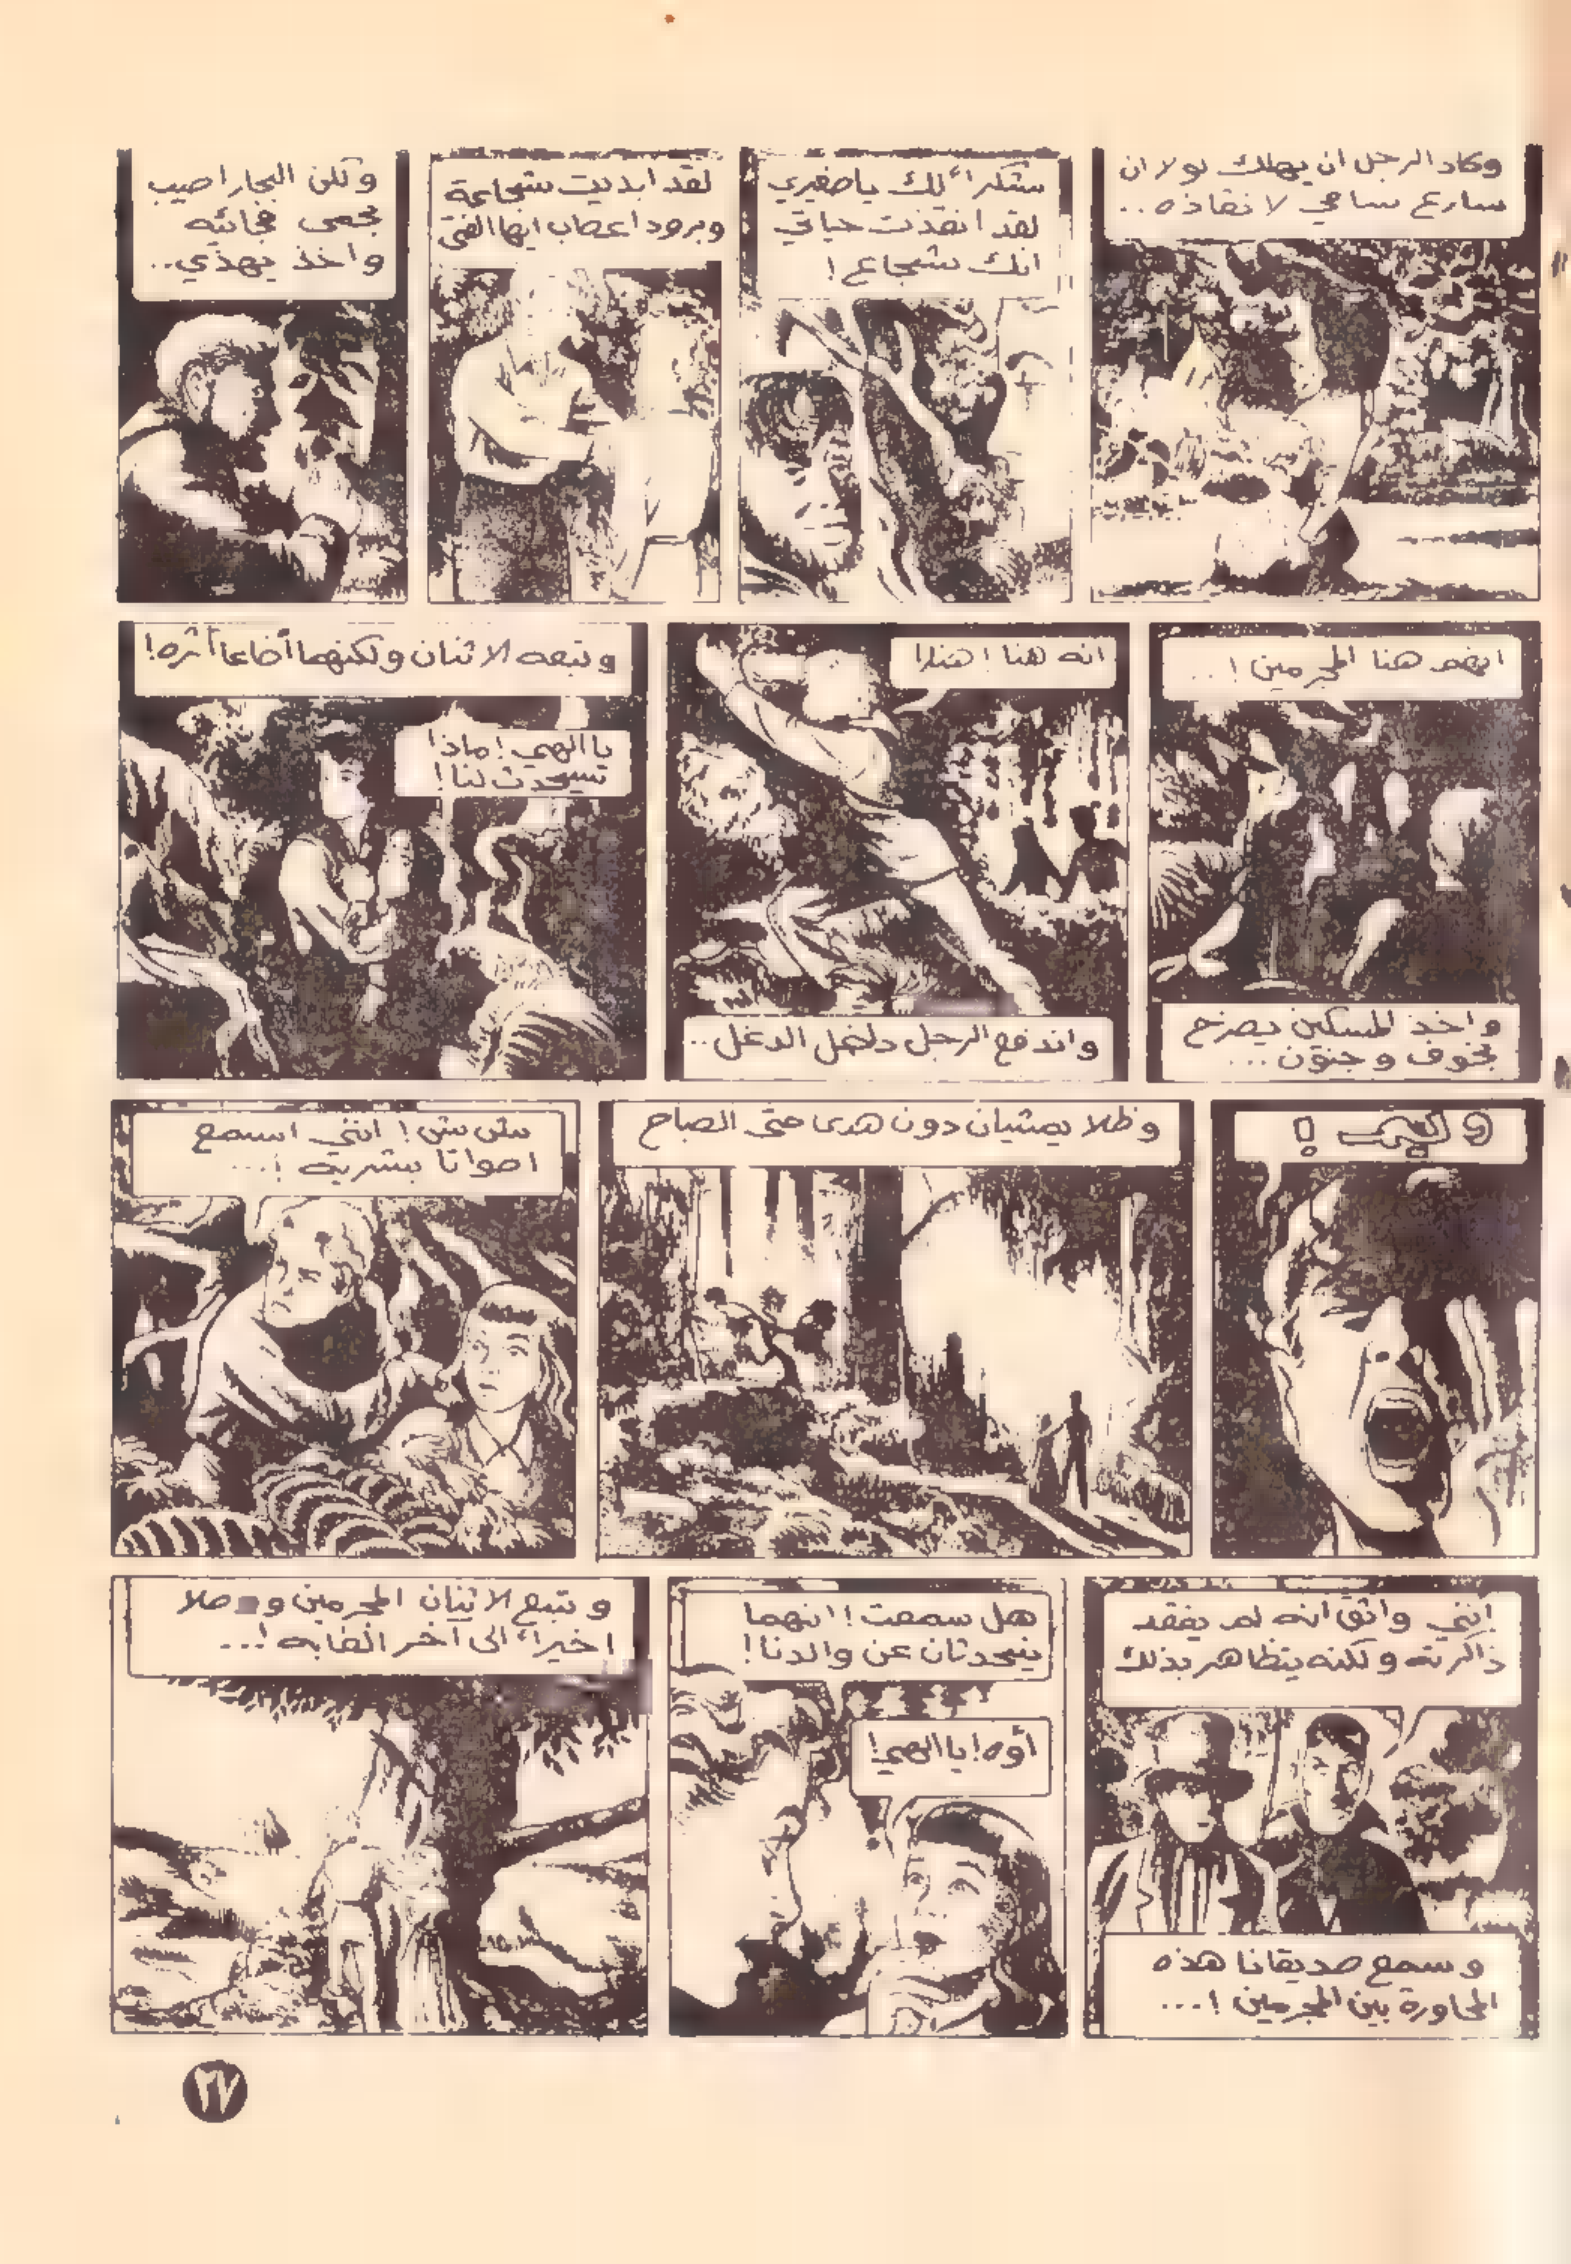 وكاد الرجل ان يهلك لولا ان
سارع سامي لانقاذه..
شكراً لك ياصغيري
لقد انقذت حياتي
انك شجاع!
لقد ابديت شجاعة
وبرود اعصاب ايها الفتى
ولكن البحار اصيب
بحمى فجائيه
واخذ يهذي..
انهم هنا المجرمين!..
واخذ المسكين يصرخ
بخوف وجنون...
انه هنا! هنا!
واندفع الرجل داخل الدغل..
وتبعه الاثنان ولكنهما أضاعا أثره!
يا الهي! ماذا
سيحدث لنا!
وليم!
وظلا يمشيان دون هدى حتى الصباح
ش ش! انني اسمع
اصواتا بشريه!...
إنني واثق انه لم يفقد
ذاكرته ولكنه يتظاهر بذلك
وسمع صديقانا هذه
المحاورة بين المجرمين!...
هل سمعت! انهما
يتحدثان عن والدنا!
أوه! يا الهي!
وتبع الاثنان المجرمين ووصلا
اخيراً الى آخر الغابه!...
٢٧